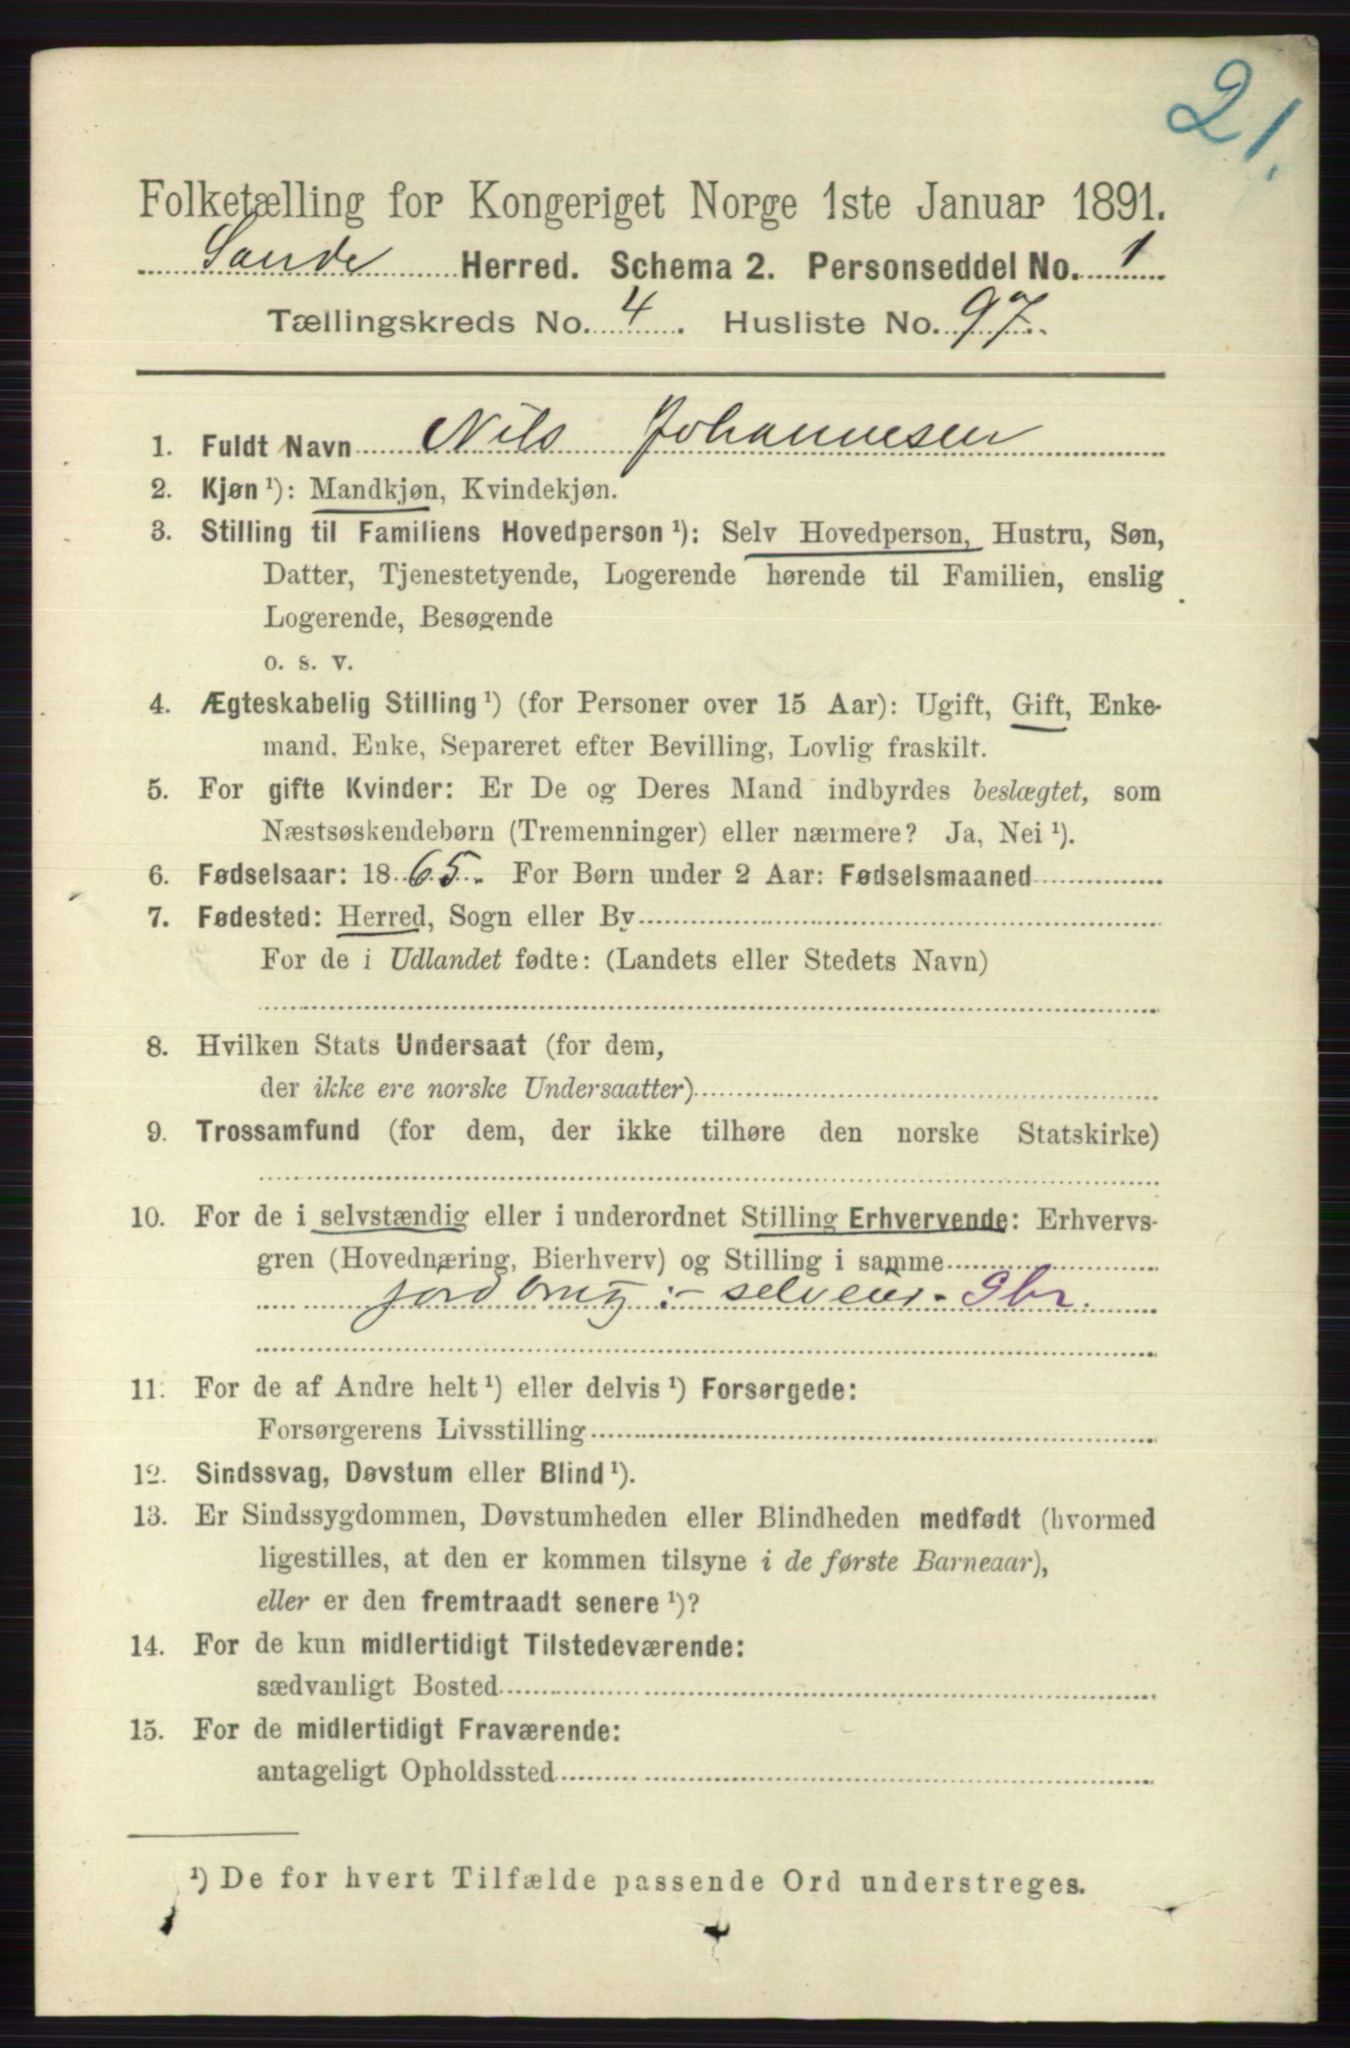 21.
Folketælling for Kongeriget Norge 1ste Januar 1891.
Sande Herred. Schema 2. Personseddel No. 1
Tællingskreds No. 4. Husliste No. 97.
1. Fuldt Navn Nils Johannesen
2. Kjøn ¹): Mandkjøn, Kvindekjøn.
3. Stilling til Familiens Hovedperson ¹): Selv Hovedperson, Hustru, Søn,
Datter, Tjenestetyende, Logerende hørende til Familien, enslig
Logerende, Besøgende
o. s. v.
4. Ægteskabelig Stilling ¹) (for Personer over 15 Aar): Ugift, Gift, Enke-
mand, Enke, Separeret efter Bevilling, Lovlig fraskilt.
5. For gifte Kvinder: Er De og Deres Mand indbyrdes beslægtet, som
Næstsøskendebørn (Tremenninger) eller nærmere? Ja, Nei ¹).
6. Fødselsaar: 1865. For Børn under 2 Aar: Fødselsmaaned
7. Fødested: Herred, Sogn eller By
For de i Udlandet fødte: (Landets eller Stedets Navn)
8. Hvilken Stats Undersaat (for dem,
der ikke ere norske Undersaatter)
9. Trossamfund (for dem, der ikke tilhøre den norske Statskirke)
10. For de i selvstændig eller i underordnet Stilling Erhvervende: Erhvervs-
gren (Hovednæring, Bierhverv) og Stilling i samme
jordbrug :- selveier. Gbr.
11. For de af Andre helt ¹) eller delvis ¹) Forsørgede:
Forsørgerens Livsstilling
12. Sindssvag, Døvstum eller Blind ¹).
13. Er Sindssygdommen, Døvstumheden eller Blindheden medfødt (hvormed
ligestilles, at den er kommen tilsyne i de første Barneaar),
eller er den fremtraadt senere ¹)?
14. For de kun midlertidigt Tilstedeværende:
sædvanligt Bosted
15. For de midlertidigt Fraværende:
antageligt Opholdssted
¹) De for hvert Tilfælde passende Ord understreges.